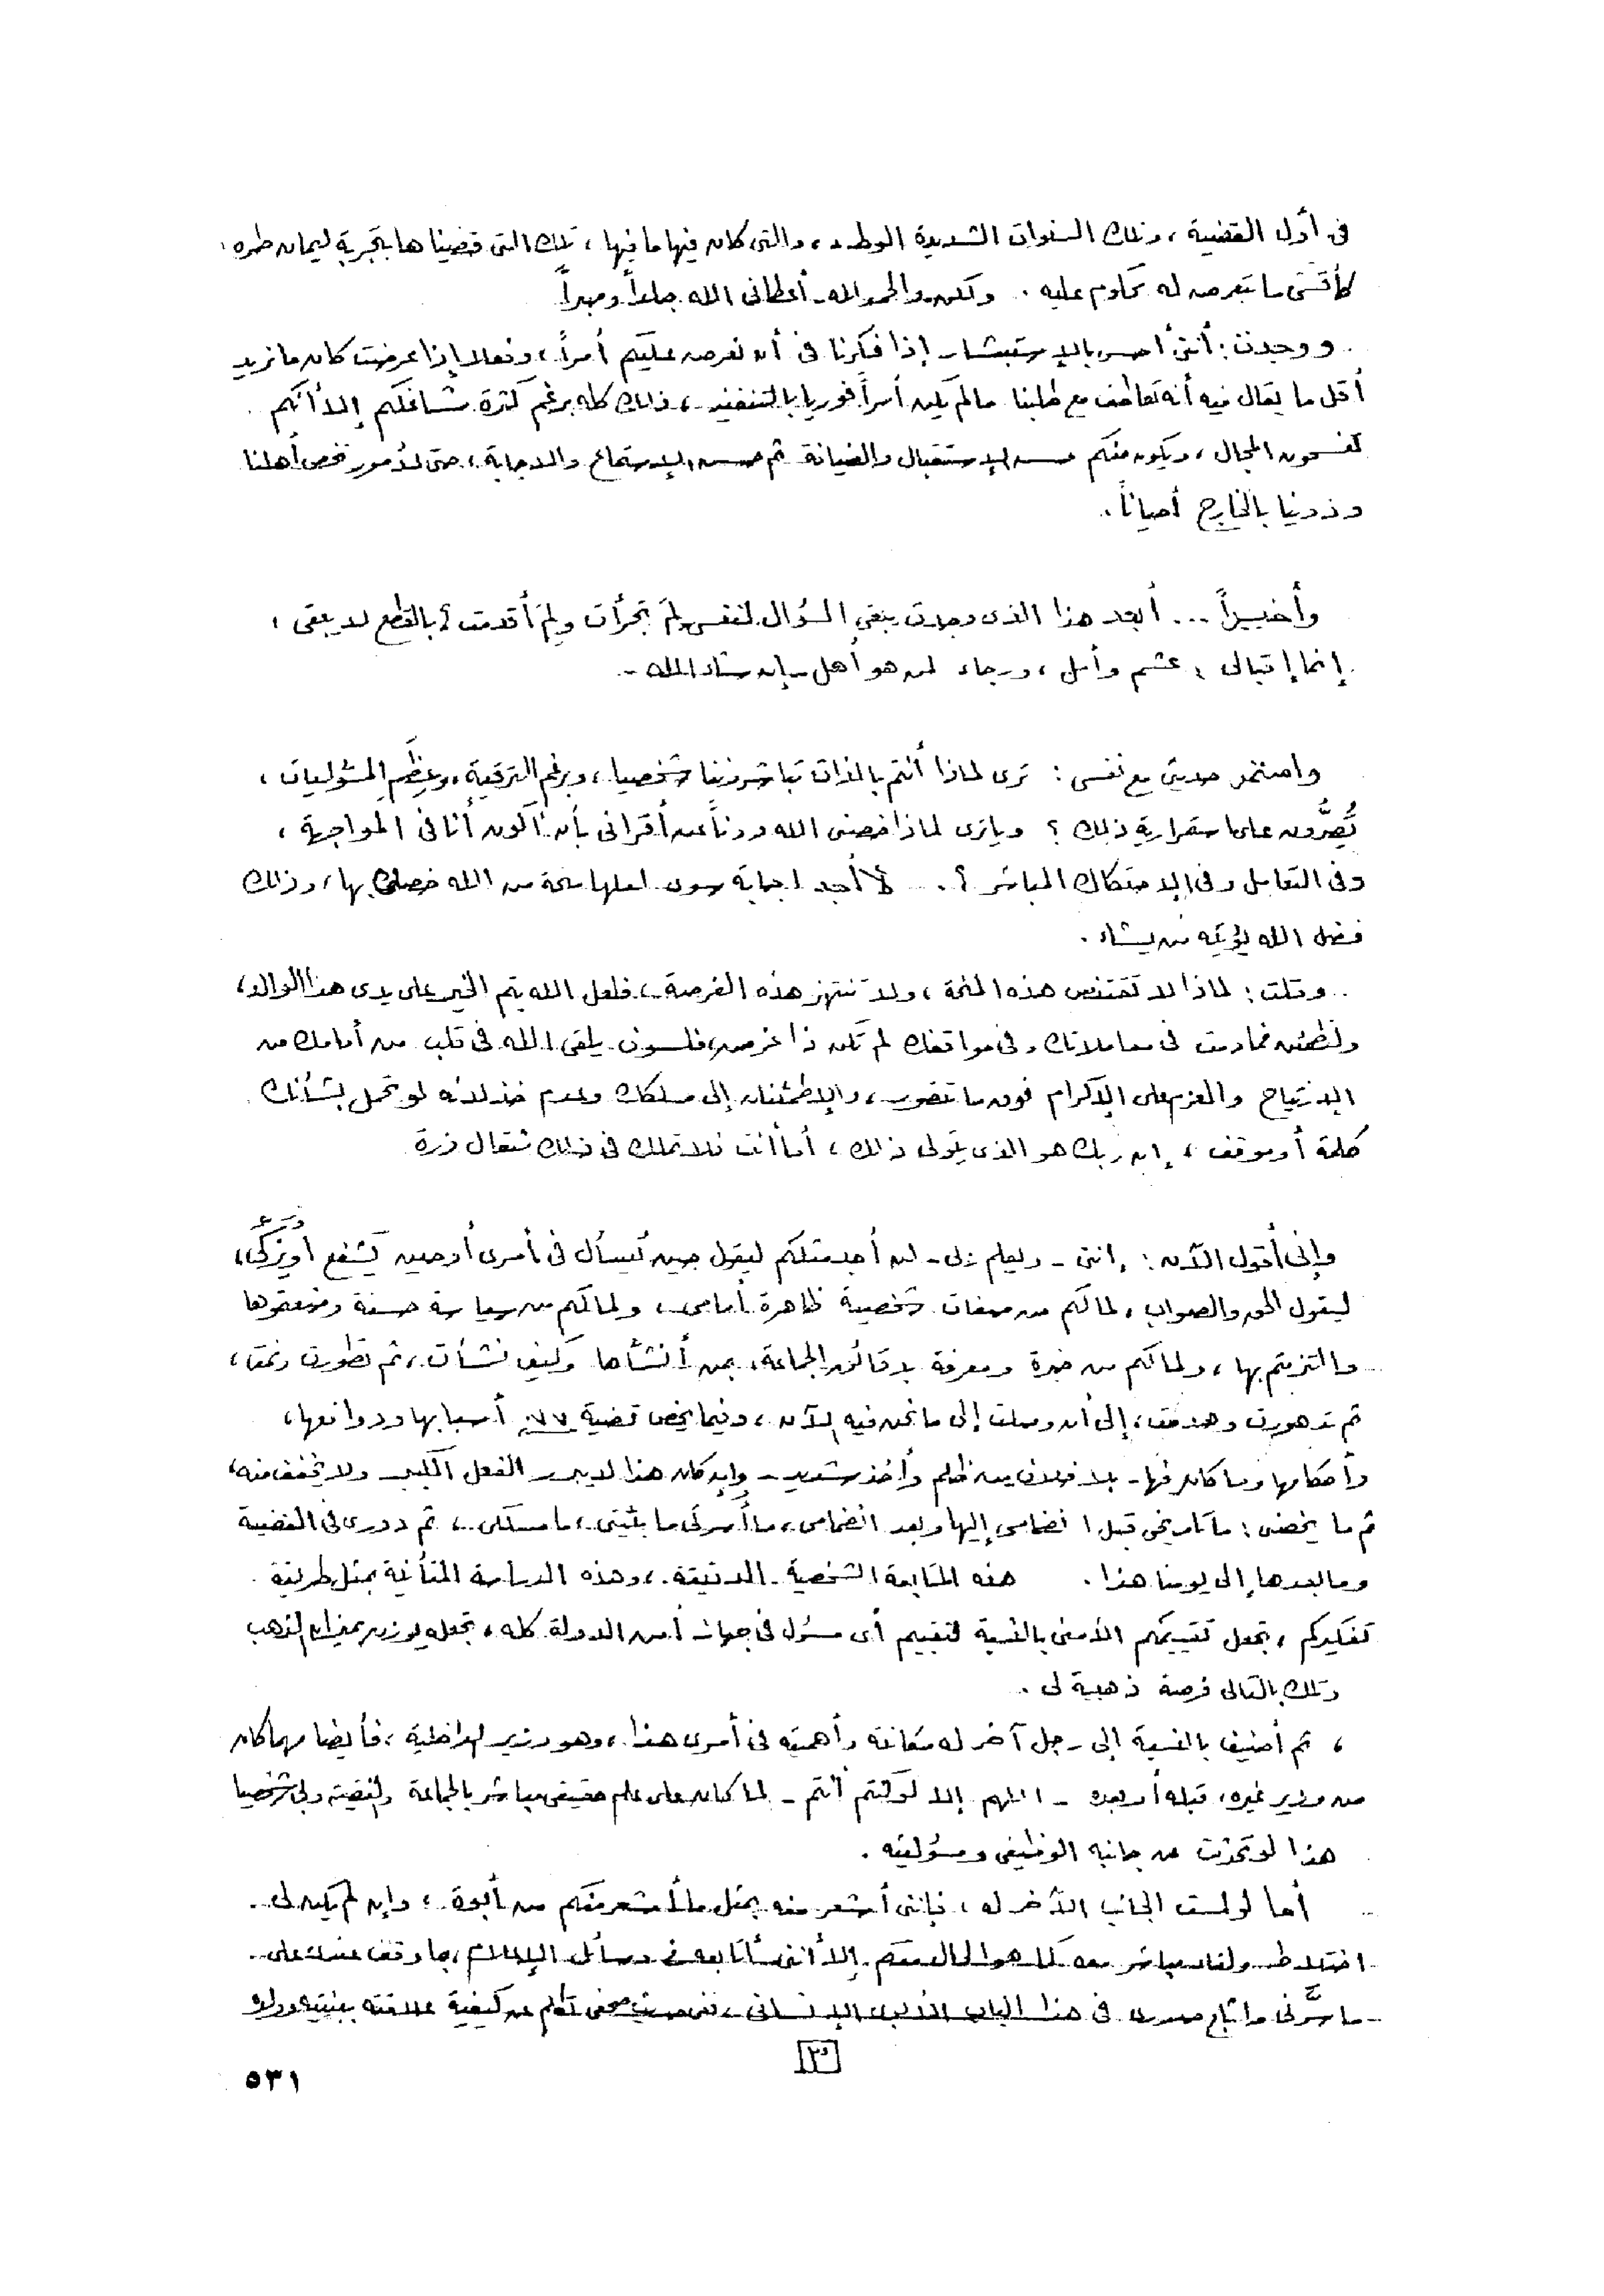 فى أول القضية ، وتلك السنوات الشديدة الوطء ، والتى كان فيها ما فيها ، تلك التى قضيناها بتجربة ليمان طره ،
كأقسى ما تعرض له محكوم عليه . ولكن والحمد لله - أعطانى الله جلداً وصبراً
.. ووجدت : أننى أحس بالإستبشار إذا فكرنا فى أن نعرض عليكم أمراً ، وفعلا إذا عرضت كان ما نريد
أقل ما يقال فيه أنه تعاطف مع طلبنا ما لم يكن أمراً فوريا بالتنفيذ ، ذلك كله برغم كثرة مشاغلكم إلا أنكم
تفسحون المجال ، ويكون منكم حسن الإستقبال والضيافة ثم حسن الإستماع والاجابة ، حتى لأمور تخص أهلنا
وذوينا بالخارج أحياناً .
وأخيـراً ... أبعد هذا الذى وجدت يبقى السؤال لنفسى لِمَ تجرأت ولِمَ أقدمت ؟ بالقطع لا يبقى ،
إنما إقبالى ; عشم وأمل ، ورجاء لمن هو أهل - إن شاء الله - .
واستمر حديثى مع نفسى : ترى لماذا أنتم بالذات تباشروننا شخصيا ، وبرغم الترقية ، وعِظَم المسئوليات ،
تُصِرُّون على استمرارية ذلك ؟ ويا ترى لماذا خصنى الله دوناً عن أقرانى بأن أكون أنا فى المواجهة ،
وفى التعامل وفى الإحتكاك المباشر ؟ . لا أجد اجابة سوى لعلها منحة من الله خصنى بها ، وذلك
فضل الله يؤتيه من يشاء .
.. وقلت : لماذا لا تقتنص هذه المنحة ، ولا تنتهز هذه الفرصة ، فلعل الله يتم الخير على يدى هذا الوالد ،
ولتطمئن فما دمت فى معاملاتك وفى مواقفك لم تكن ذا غرض ، فلسوف يلقى الله فى قلب من أمامك من
الإرتياح والعزم على الإكرام فوق ما تتصور ، والإطمئنان إلى مسلكك وعدم خذلانه لو تحمل بشأنك
كلمة أو موقف ، إن ربك هو الذى يتولى ذلك ، أما أنت فلا تملك فى ذلك مثقال ذرة
وإنى أقول الآن : إننى - ويعلم ربى - لن أجد مثلكم ليقول حين يُسأل فى أمرى أو حين يَشفع أو يُزكِّى ،
ليقول الحق والصواب ، لما لكم من صفات شخصية ظاهرة أمامى ، ولما لكم من سياسة حسنة وضعتموها
والتزمتم بها ، ولما لكم من خبرة ومعرفة بدقائق الجماعة ، بمن أنشأها وكيف نشأت ، ثم تطورت ونمت ،
ثم تدهورت وهدمت ، إلى أن وصلت إلى ما نحن فيه الآن ، وفيما يخص قضية ٧٧ ، أسبابها ودوافعها ،
وأحكامها وما كان فيها - بلا خلاف من ظلم وأخذ شديد - وإن كان هذا لا يبرر الفعل الكلى ولا يخفف منه ،
ثم ما يخصنى ; ما تاريخى قبل انضمامى إليها وبعد انضمامى ، ما أسرتى ما بيئتى ، ما مسلكى ، ثم دورى فى القضية
وما بعدها إلى يومنا هذا . هذه المتابعة الشخصية الدقيقة ، وهذه الدراسة المتأنية بمثل طريقة
تفكيركم ، تجعل تقييمكم الأمنى بالنسبة لتقييم أى مسئول فى جهات أمن الدولة كله ، تجعله يوزن بميزان الذهب
وتلك بالتالى فرصة ذهبية لى .
، ثم أضيف بالنسبة إلى رجل آخر له مكانته وأهميته فى أمرى هذا ، وهو وزير الداخلية ، فأيضا مهما كان
من وزير غيره ، قبله أو بعده - اللهم إلا لو كنتم أنتم - لما كان على علم حقيقى مباشر بالجماعة والقضية وبى شخصيا
هذا لو تحدثت عن جانبه الوظيفى ومسؤليته .
أما لو لمست الجانب الآخر له ، فإننى أشعر منه بمثل ما أشعر منكم من أبوة ، وإن لم يكن لى
اختلاط ولقاء مباشر معه كما هو الحال معكم إلا أننى أتابعه فى وسائل الإعلام ، بما وقفت عنده على
ما سَرَّنى وأثلج صدرى فى هذا الباب الأبوى الإنسانى ، ففى حديث صحفى تكلم عن كيفية علاقته ببنتيه وولده
٣
٥٣١